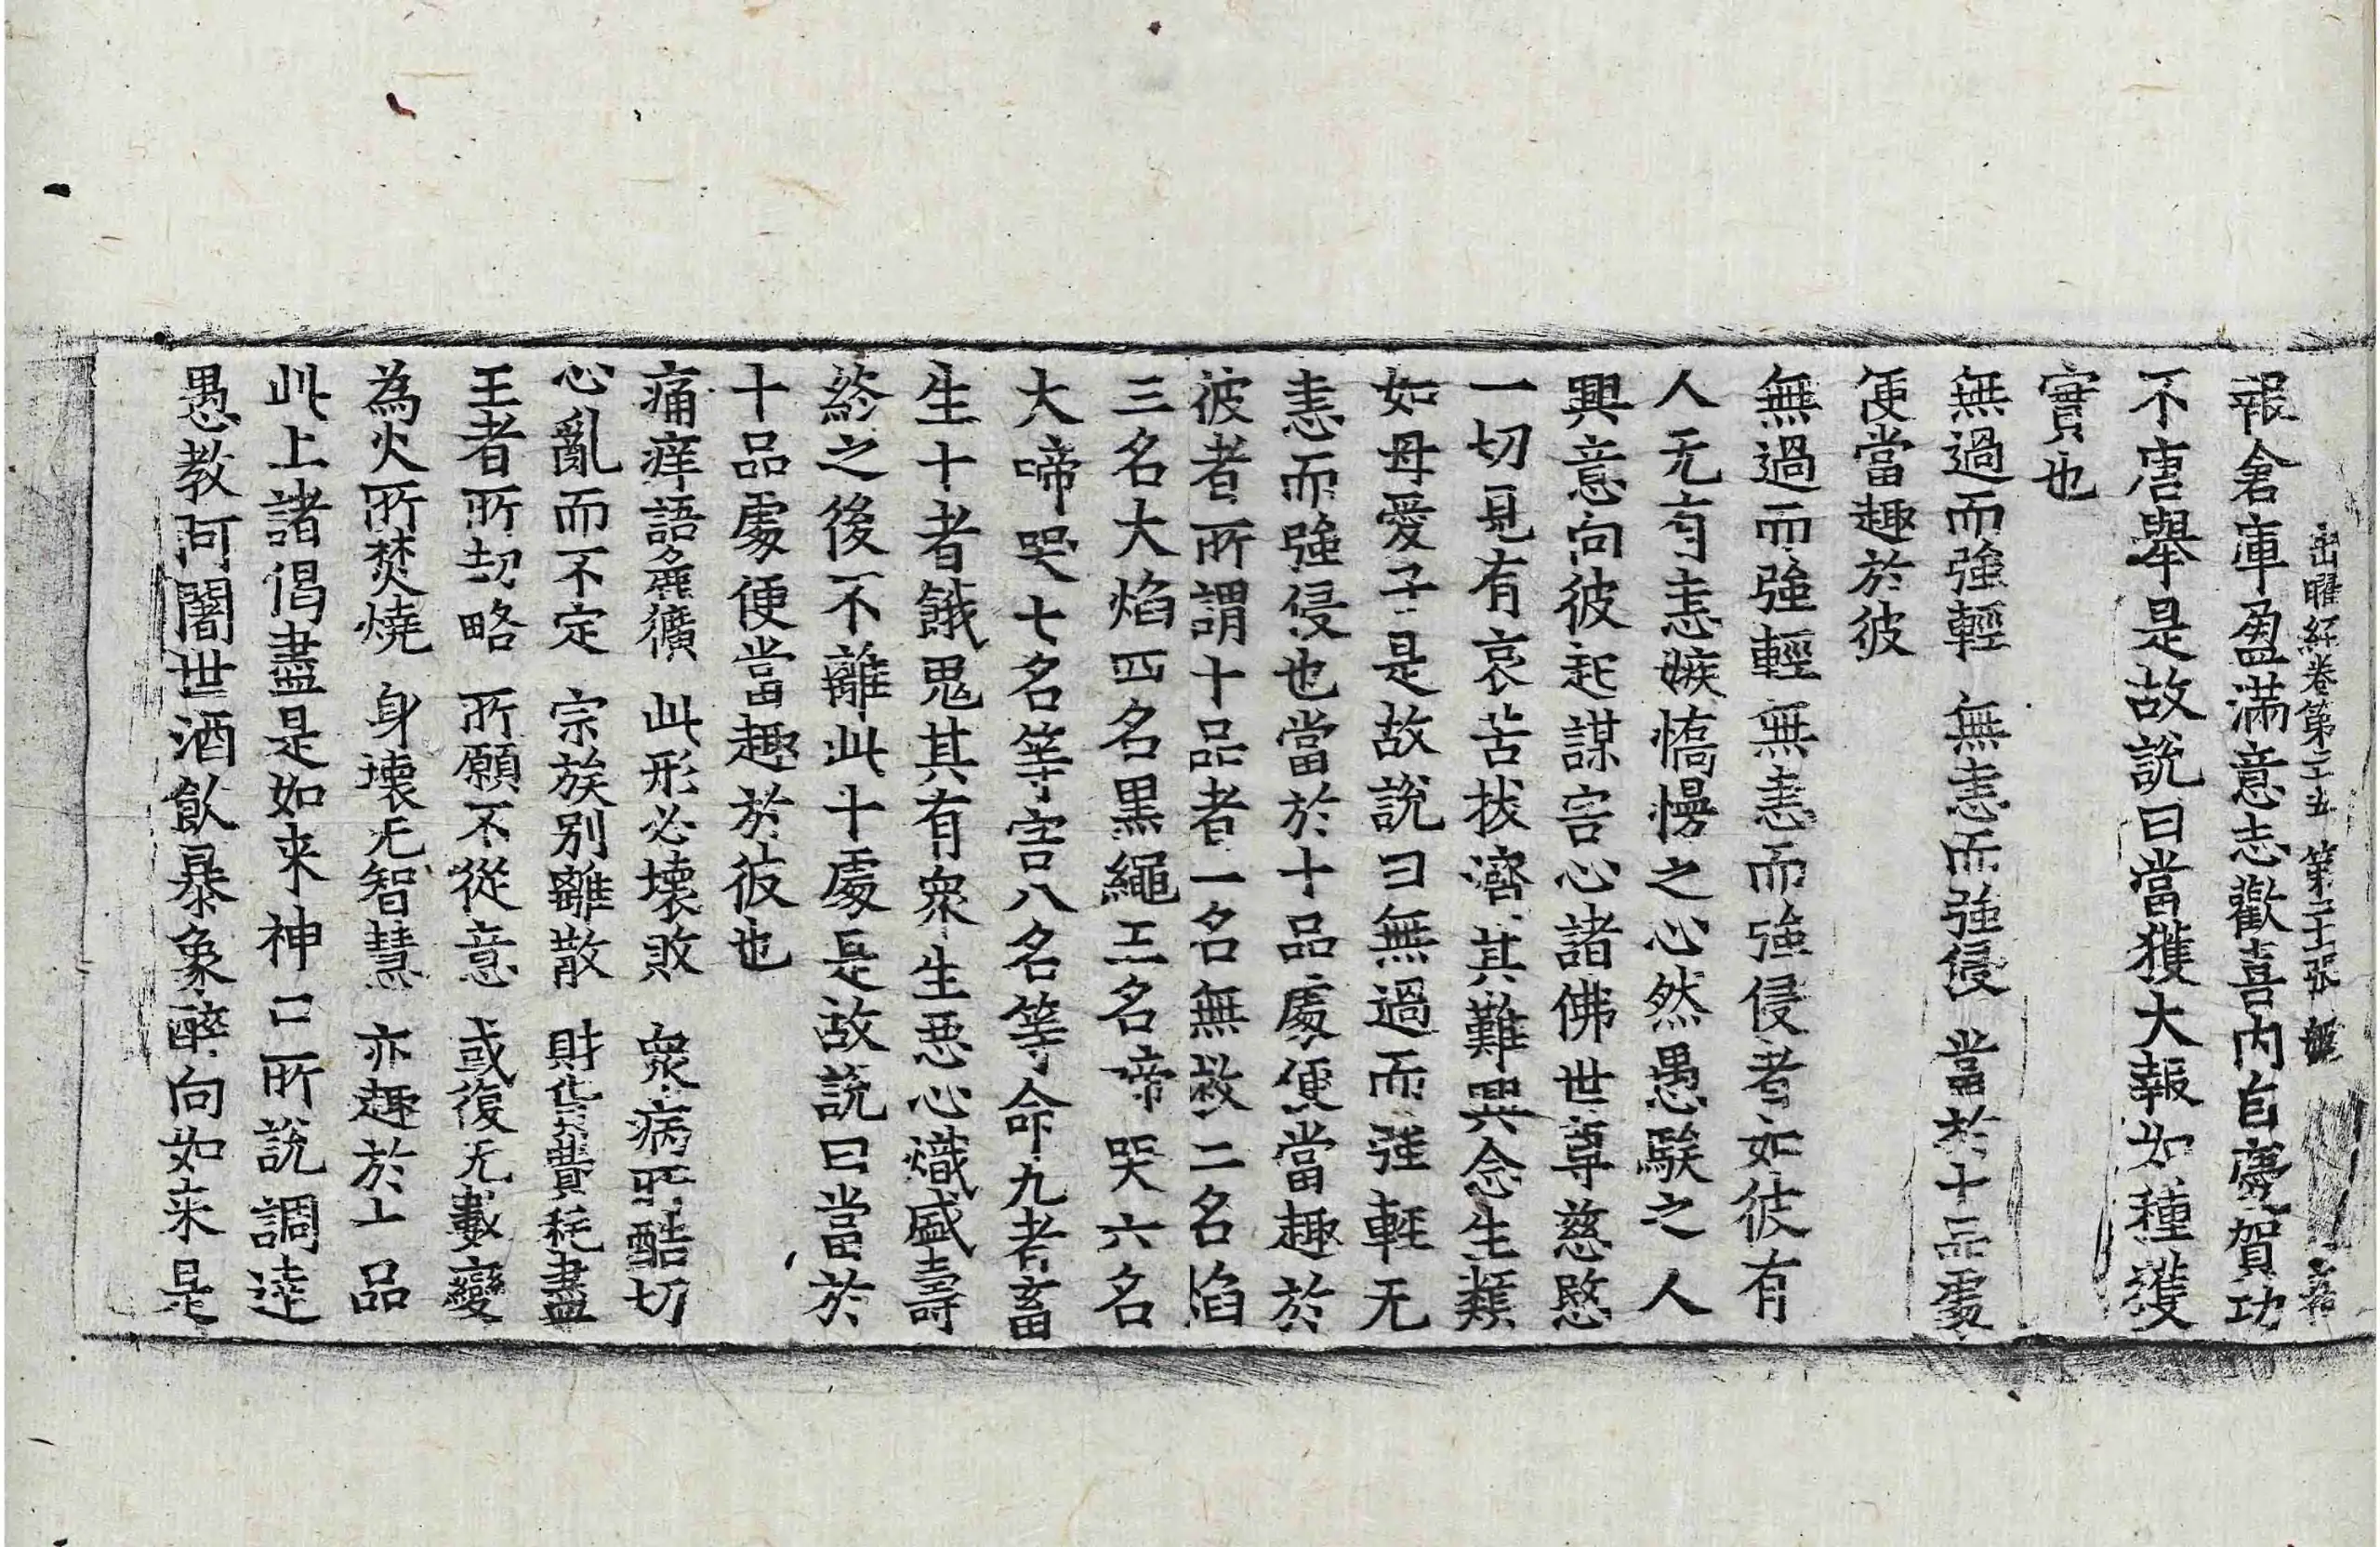 出曜經卷第二十五 第二十張
報倉庫盈滿意志歡喜內自慶賀功
不唐舉是故說曰當獲大報如種獲
實也
無過而強輕 無恚而強侵 當於十品處
便當趣於彼
無過而強輕無恚而強侵者如彼有
人无有恚嫉憍慢之心然愚騃之人
興意向彼起謀害心諸佛世尊慈愍
一切見有哀苦拔濟其難興念生類
如母愛子是故說曰無過而強輕无
恚而強侵也當於十品處便當趣於
彼者所謂十品者一名無救二名焰
三名大焰四名黑繩五名啼哭六名
大啼哭七名等害八名等命九者畜
生十者餓鬼其有衆生惡心熾盛壽
終之後不離此十處是故說曰當於
十品處便當趣於彼也
痛痒語麁獷 此形必壞敗 衆病所酷切
心亂而不定 宗族別離散 財貨費耗盡
王者所劫略 所願不從意 或復无數變
為火所焚燒 身壞无智慧 亦趣於十品
此上諸偈盡是如來神口所說調達
愚教阿闍世酒飲暴象醉向如来是